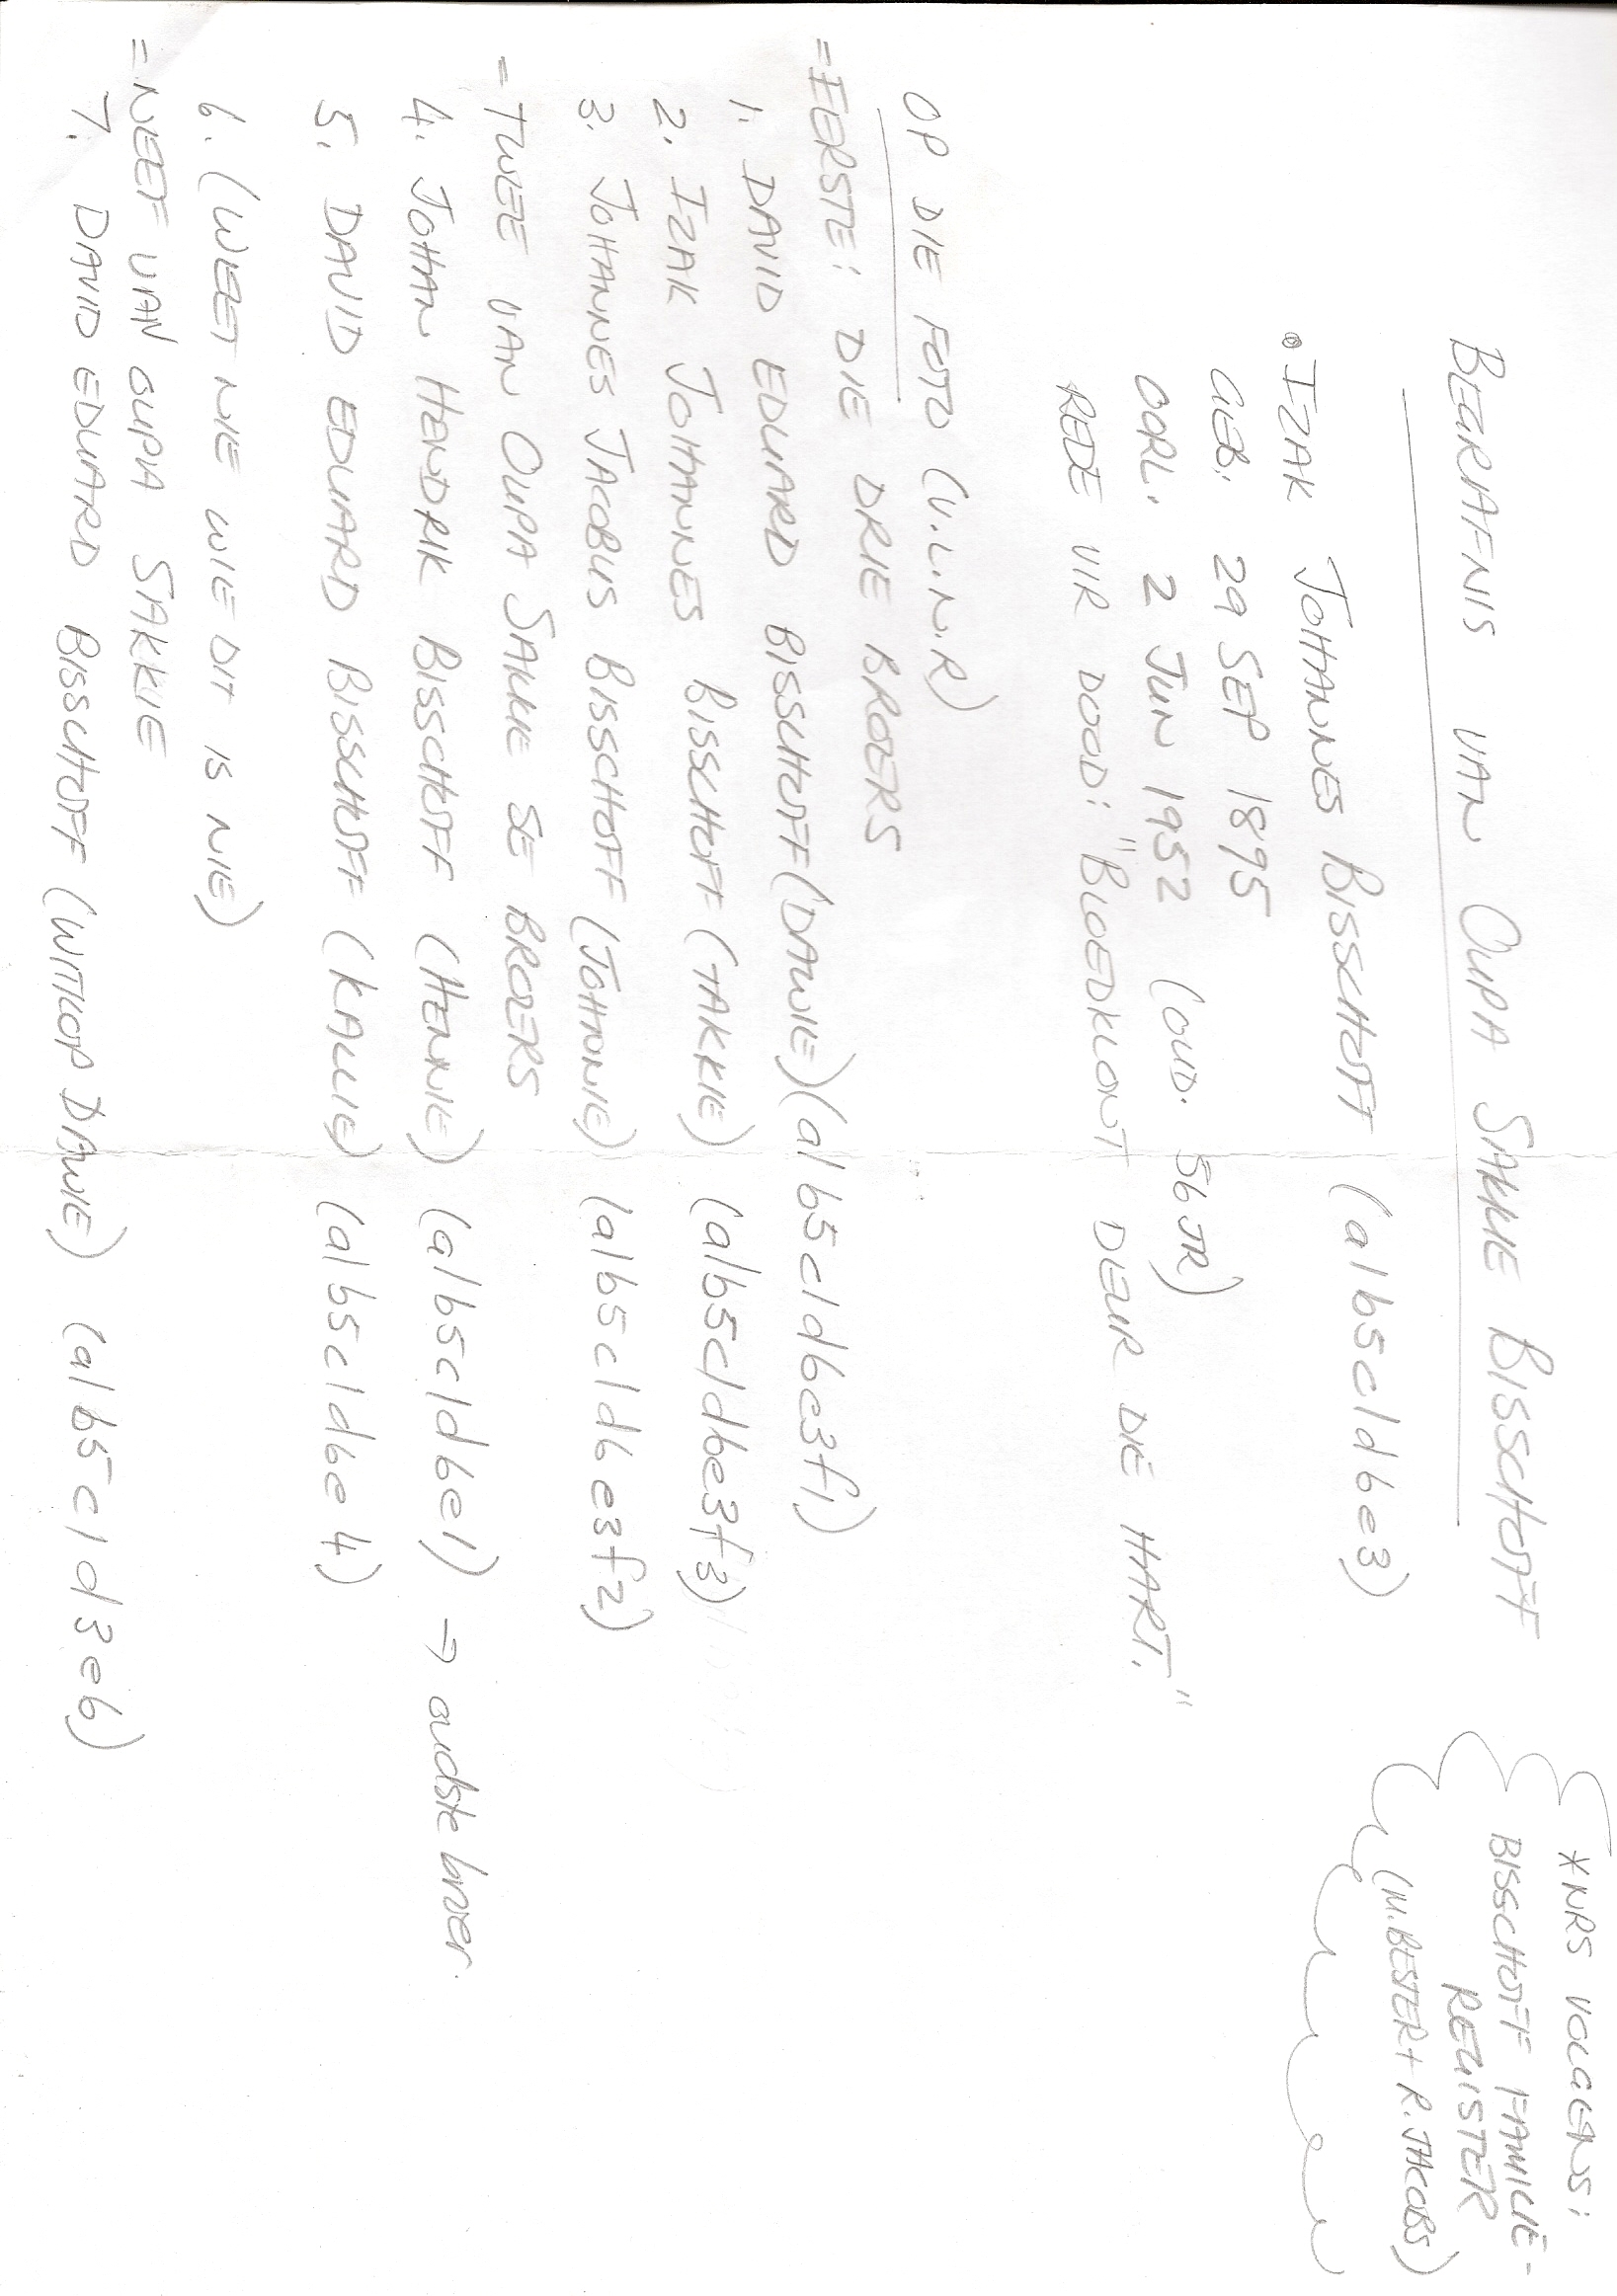 BEGRAFNIS VAN OUPA SAKKIE BISSCHOFF
*NRS VOLGENS:
BISSCHOFF FAMILIE-
REGISTER
(M. BESTER + R. JACOBS)
• IZAK JOHANNES BISSCHOFF (a1b5c1d6e3)
GEB. 29 SEP 1895
OORL. 2 JUN 1952 (OUD. 56 JR)
REDE VIR DOOD: "BLOEDKLONT DEUR DIE HART."
OP DIE FOTO (V.L.N.R)
= EERSTE: DIE DRIE BROERS
1. DAVID EDUARD BISSCHOFF (DAWIE) (a1b5c1d6e3f1)
2. IZAK JOHANNES BISSCHOFF (TAKKIE) (a1b5c1d6e3f3)
3. JOHANNES JACOBUS BISSCHOFF (JOHNNIE) (a1b5c1d6e3f2)
= TWEE VAN OUPA SAKKIE SE BROERS
4. JOHAN HENDRIK BISSCHOFF (HENNIE) (a1b5c1d6e1) → oudste broer.
5. DAVID EDUARD BISSCHOFF (KALLIE) (a1b5c1d6e4)
6. (WEET NIE WIE DIT IS NIE)
= NEEF VAN OUPA SAKKIE
7. DAVID EDUARD BISSCHOFF (WITKOP DAWIE) (a1b5c1d3e6)